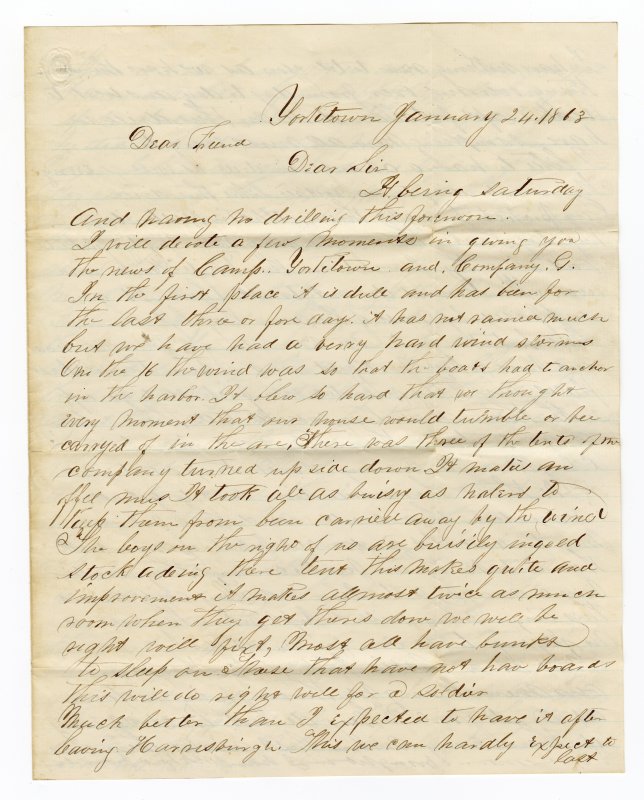 Yorketown January 24. 1863
Dear Friend
Dear Sir
It being saturday
And having no drilling this forenoon.
I will devote a few moments in giving you
the news of Camp. Yorketown and. Company. G.
In the first place it is dull and has been for
the last three or fore day. it has not rained much
but we have had a verry hard wind storms
On the 16 the wind was so that the boats had to anchor
in the harbor. It blew so hard that we thought
every moment that our house would tumble or bee
carryed of in the are, There was three of the tents of our
company turned up side down It makes an
muss It took all as buisy as to
Keep them from been carried away by the wind
The boys on the right of us are buisily ingeed
Stockadeing there tent this makes quite and
improvement it makes allmost twice as much
room when they get theirs done we will be
right well fixt, Most all have bunks
to sleep on those that have not hav boards
this will do right well for a soldier
Much better than I expected to have it after
leaving Harrisburgh This we can hardly expect to
last